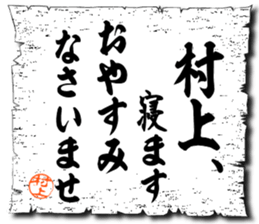 村上、
寝ます
おやすみ
なさいませ